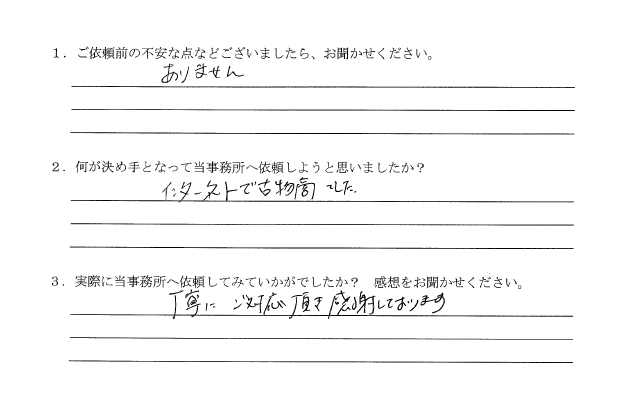 １．ご依頼前の不安な点などございましたら、お聞かせください。
ありません
２．何が決め手となって当事務所へ依頼しようと思いましたか？
インターネットで古物商でした.
３．実際に当事務所へ依頼してみていかがでしたか？　感想をお聞かせください。
丁寧に ご対応 頂き 感謝しております